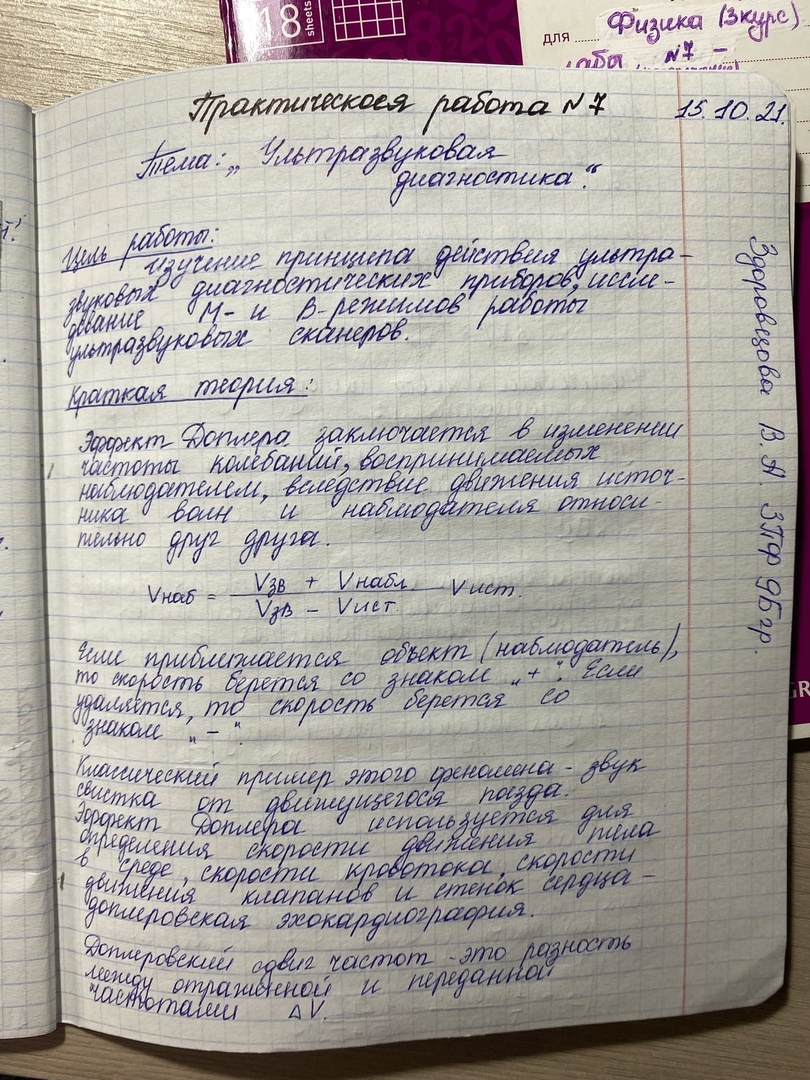 18 sheets
для Физика (3курс)
№7 –
Практическося работа №7 15.10.21.
Тема: „ Ультразвуковая
диагностика."
Цель работы:
изучение принципа действия ультра-
звуковых диагностических приборов, иссле-
дование М- и В-режимов работы
ультразвуковых сканеров.
Краткая теория:
Эффект Доплера заключается в изменении
частоты колебаний, воспринимаемых
наблюдателем, вследствие движения источ-
ника волн и наблюдателя относи-
тельно друг друга.
Vнаб = Vзв + Vнабл. / Vзв – Vист. Vист.
Если приближается объект (наблюдатель),
то скорость берется со знаком „+". Если
удаляется, то скорость берется со
знаком „–".
Классический пример этого феномена - звук
свистка от движущегося поезда.
Эффект Доплера используется для
определения скорости движения тела
в среде, скорости кровотока, скорости
движения клапанов и стенок сердца -
доплеровская эхокардиография.
Доплеровский сдвиг частот - это разность
между отраженной и переданной
частотами ΔV.
Здоровцова В. А. 3ПФ 9Бгр.